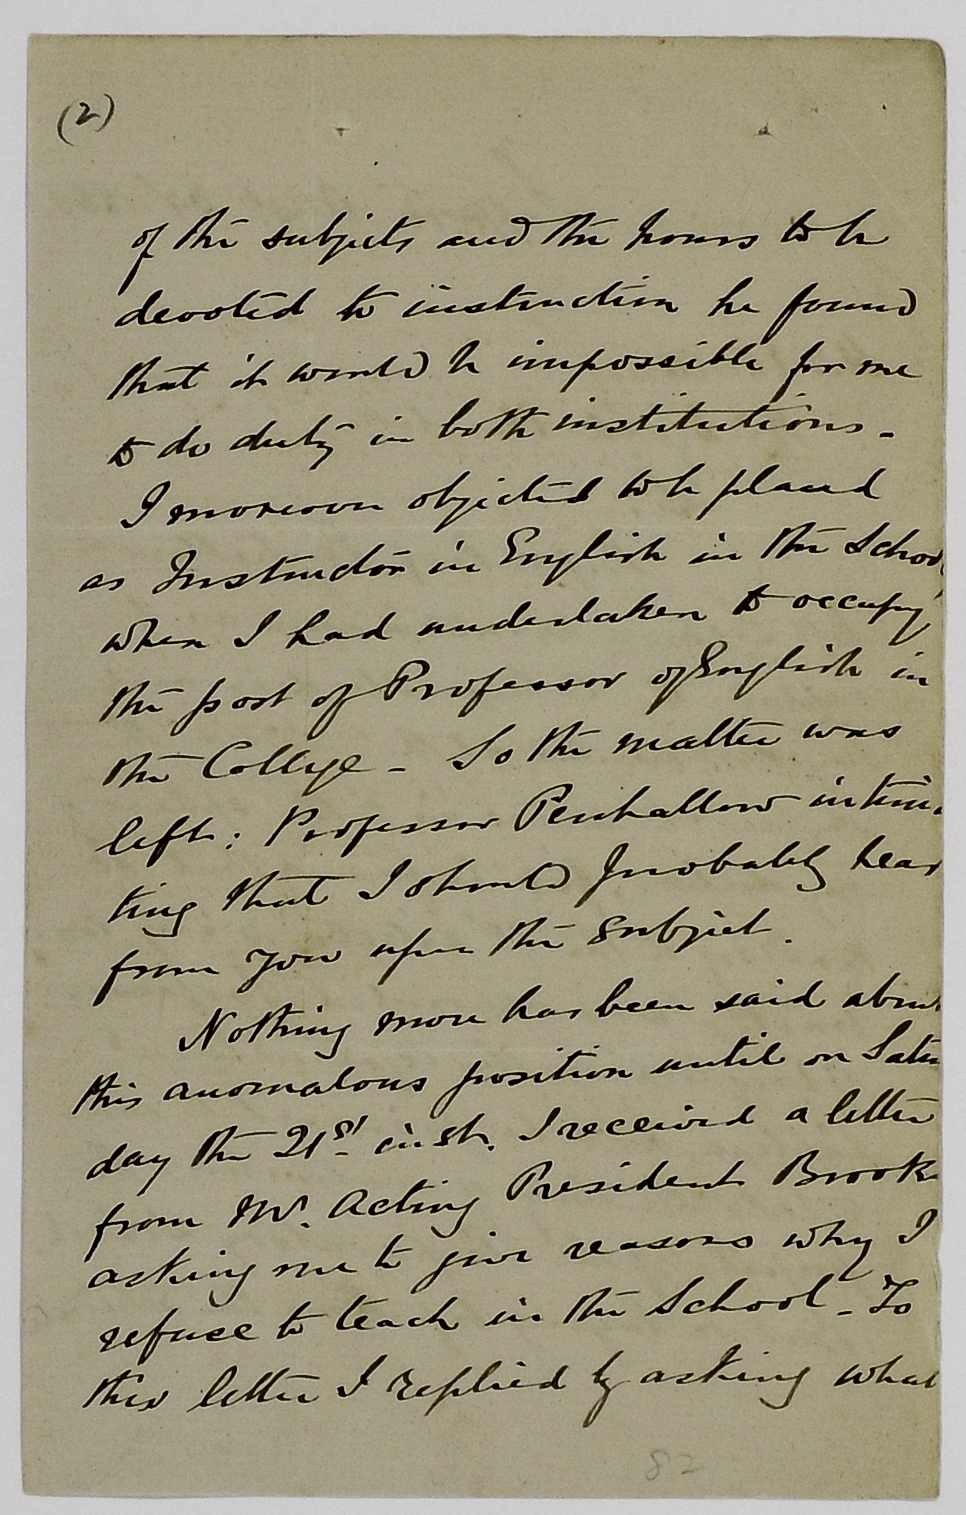 (2)
of the subjects and the hours to be
devoted to instruction he found
that it would be impossible for me
to do duty in both institutions.
I moreover objected to be placed
as Instructor in English in the School
when I had undertaken to occupy
the post of Professor of English in
the College - So the matter was
left: Professor Penhallow intima
ting that I should probably hear
from you upon the subject.
Nothing more has been said about
this anomalous position until on Satur
day the 21st inst. I received a letter
from Mr. Acting President Brooks
asking me to give reasons why I
refuse to teach in the School - To
this letter I replied by asking what
82